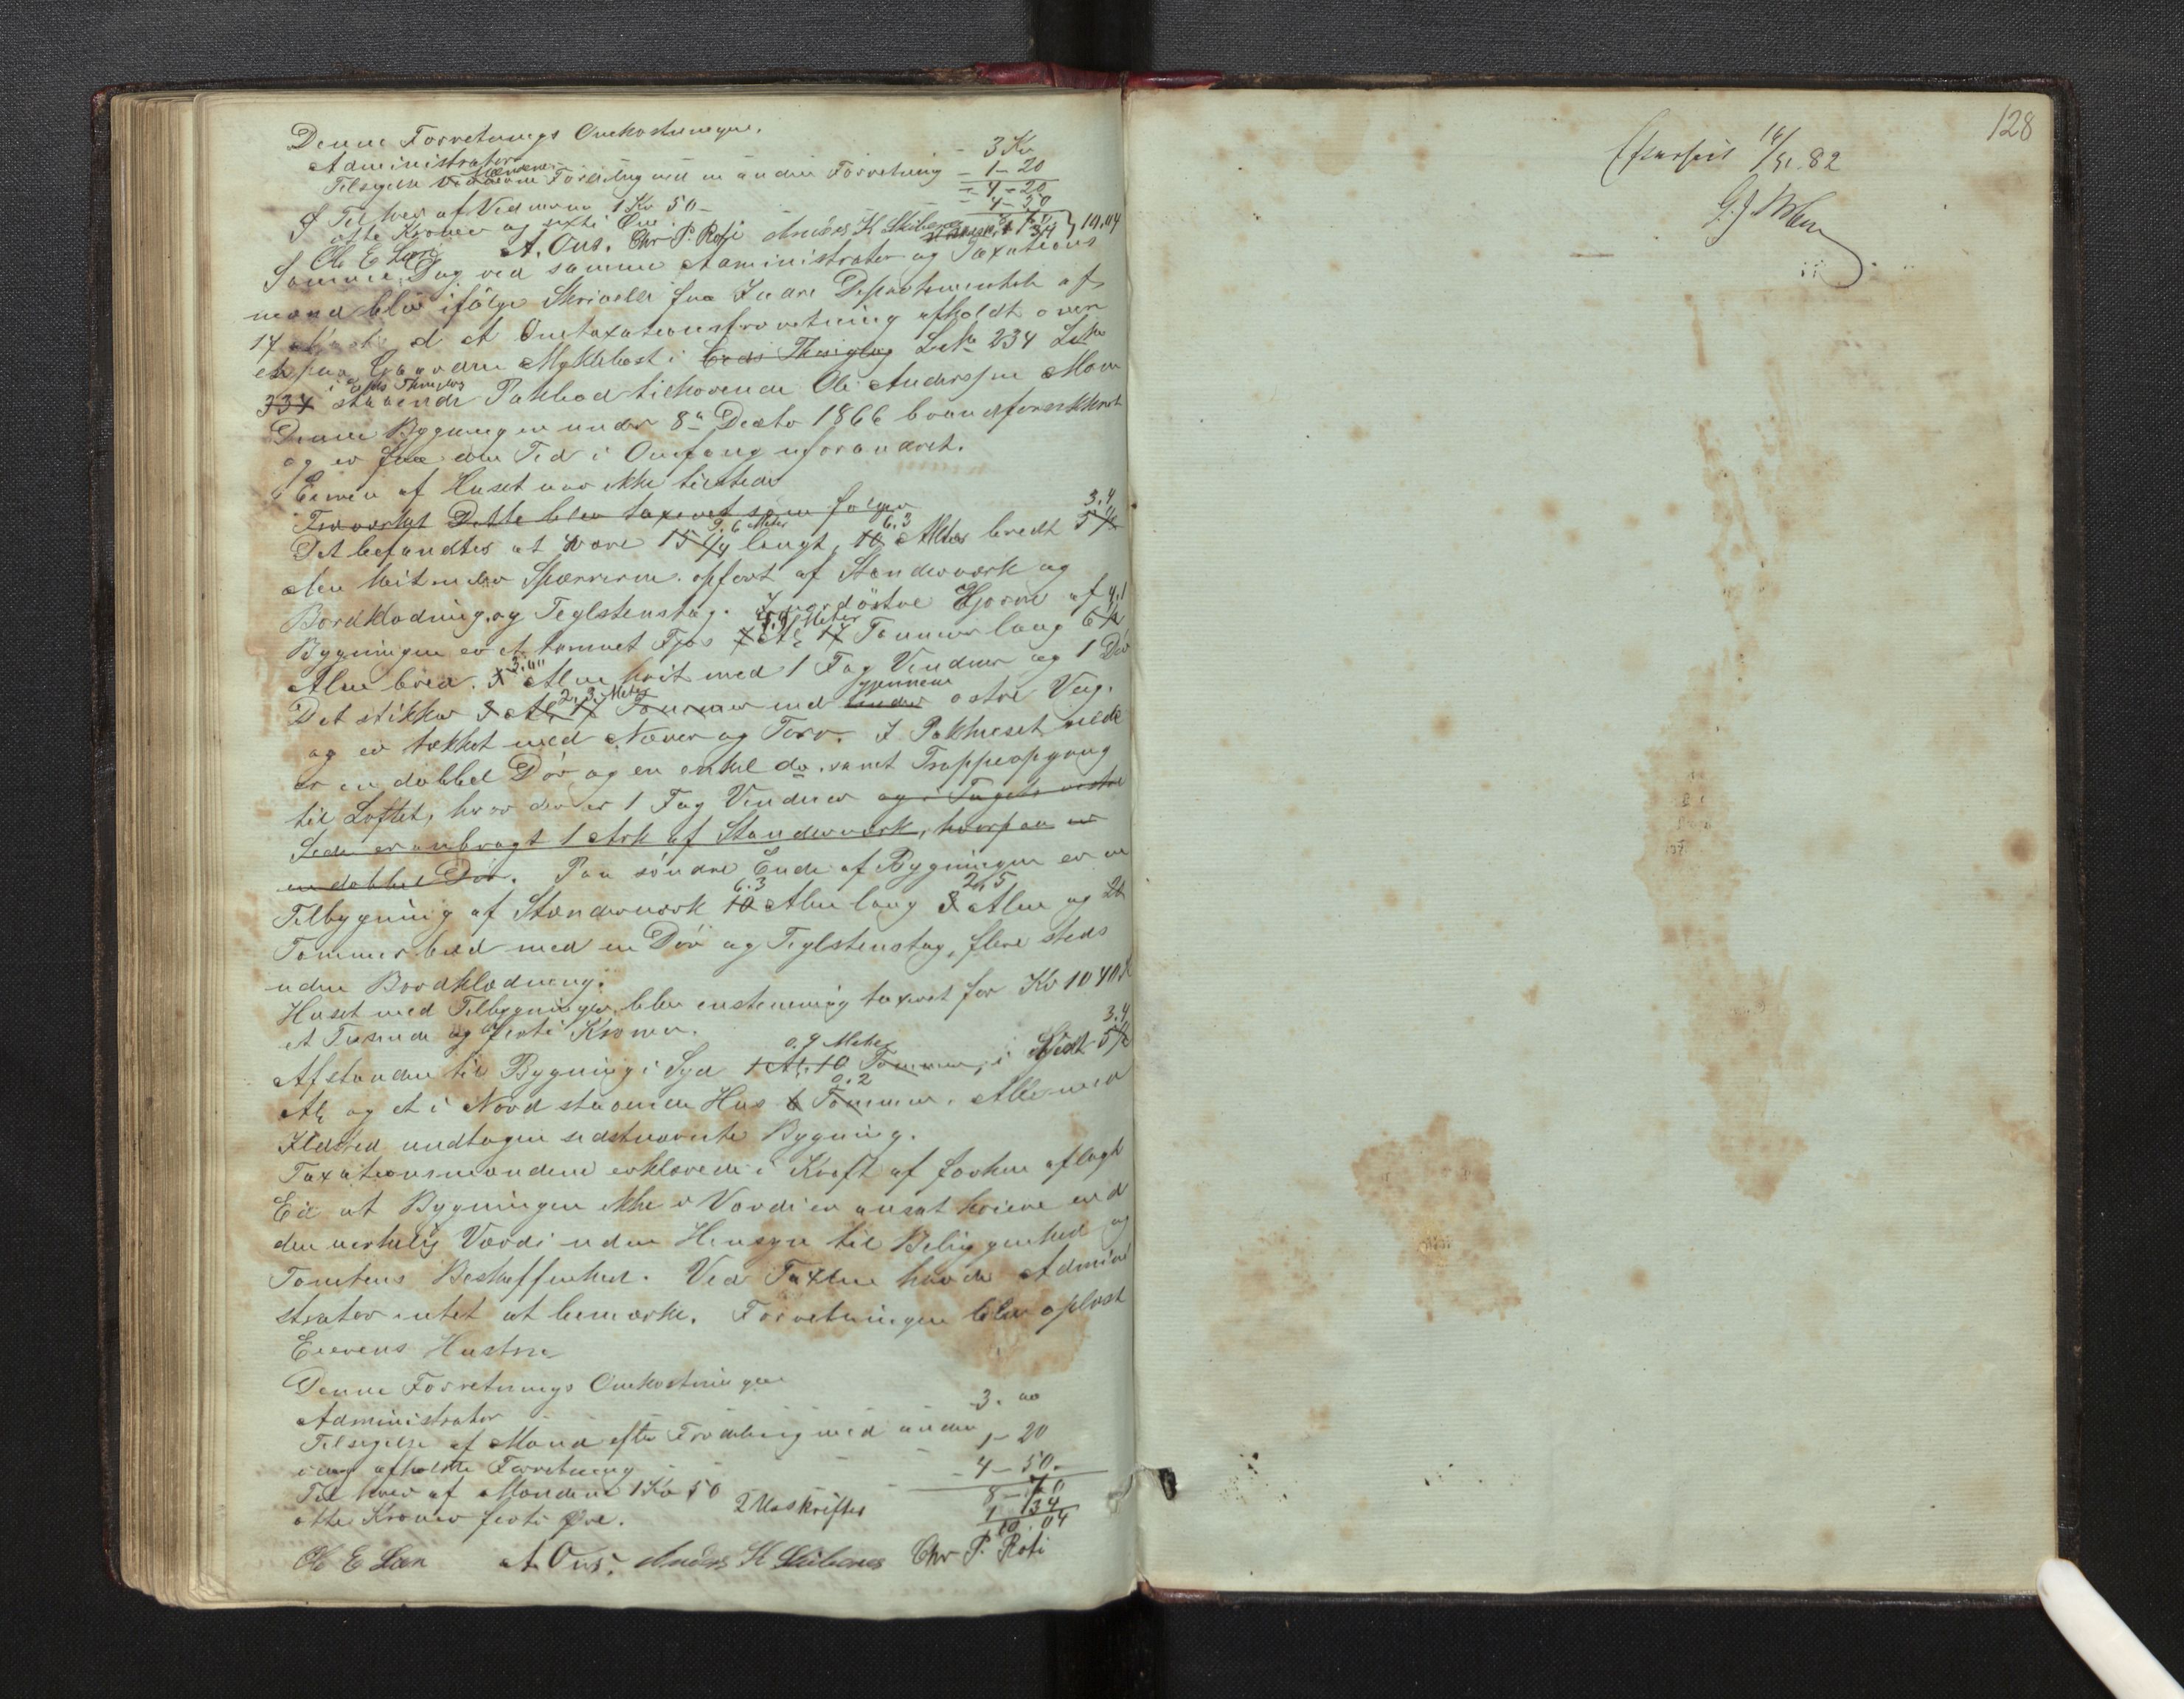 Denne Forretnings Omkostninger.
Administrator 3 Kr
Tilsigelse Mændene Fordeling med en anden Forretning - 1-20
= 4-20
Til hver af Vidnerne 1 Kr 50 - 4-50
otte Kroner og sytti Øre 8 70 1 34 } 10.04
Ole E Løen A. Aus. Chr P. Roti Anders K Skibenes
Samme Dag ved samme Administrator og Taxations
mænd blev ifølge Skrivelse fra Indre Departementet af
17 d et Omtaxationsforretning afholdt over
et paa Gaarden Myklebost i Eids Thinglag LNo 234 LNo
334 i Eids Thinglag staaende Pakbod tilhørende Ole Andersen Moen
Denne Bygning er under 8de Decbr 1866 brandforsikkret
og er fra den Tid i Omfang uforandret.
Eieren af Huset var ikke tilstede
Forøvrigt Dette blev taxeret som følger
Det befandtes at være 15 1/4 9.6 Meter langt, 10 6.3 Alen bredt 5 1/2 3.4
Alen høit under Sperrerne. opført af Stenderværk og
Bordklædning, og Teglstenstag. I nordøstre Hjørne af
Bygningen er et tømret Fjøs 7 Al 17 Tommer lang 6 1/2 4.1
Alen bred. 5 3.00 Alen høit med 1 Fag Vinduer og 1 Dør
Det stikker 3 Al 17 Tommer 2.3 Meter ud under gjennem østre Væg.
og er tækket med Næver og Torv. I Pakhuset nede
er en dobbel Dør og en enkel do. samt Trappeopgang
til Loftet, hvor der er 1 Fag Vinduer og i Tagets vestre
Side er anbragt 1 Ark af Standerværk, hvorpaa er
en dobbel Dør. Paa søndre Ende af Bygningen er en
Tilbygning af Stenderværk 10 6.3 Alen lang 3 2,5 Alen og 22
Tommer bred med en Dør og Teglstenstag, flere steds
uden Bordklædning.
Huset med Tilbygninger blev enstemmig taxeret for Kr 1040
et Tusinde og førti Kroner.
Afstanden til Bygning i Syd 1 Al. 10 Tommer, 0.9 Meter i Vest 5 1/2 3.4
Al, og et i Nord staaende Hus 6 Tommer 0.2. Alle uden
Ildsted undtagen sidstnævnte Bygning.
Taxationsmændene erklærede i Kraft af forhen aflagt
Eid at Bygningen ikke i Værdi er ansat høiere end
den virkelig Værdi uden Hensyn til Beliggenhed og
Tomtens Beskaffenhed. Ved Taxten havde Admini
strator intet at bemærke. Forretningen blev oplæst
Eierens Hustru
Denne Forretnings Omkostninger
Administrator 3. 00
Tilsigelse af Mænd efter Fordeling med anden 1-20
i dag afholdte Forretning
Til hver af Mændene 1 Kr 50 - 4-50.
8-70
otte Kroner sytti Øre. 2 Udskrifter 1 34
10.04
Ole E Løen A. Aus. Anders K Skibenes Chr P. Roti
128
Efterseet 16/51.82